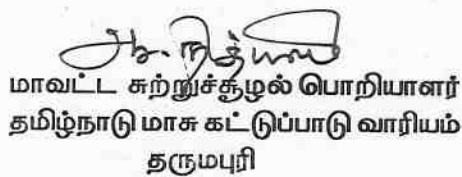 மாவட்ட சுற்றுச்சூழல் பொறியாளர்
தமிழ்நாடு மாசு கட்டுப்பாடு வாரியம்
தருமபுரி